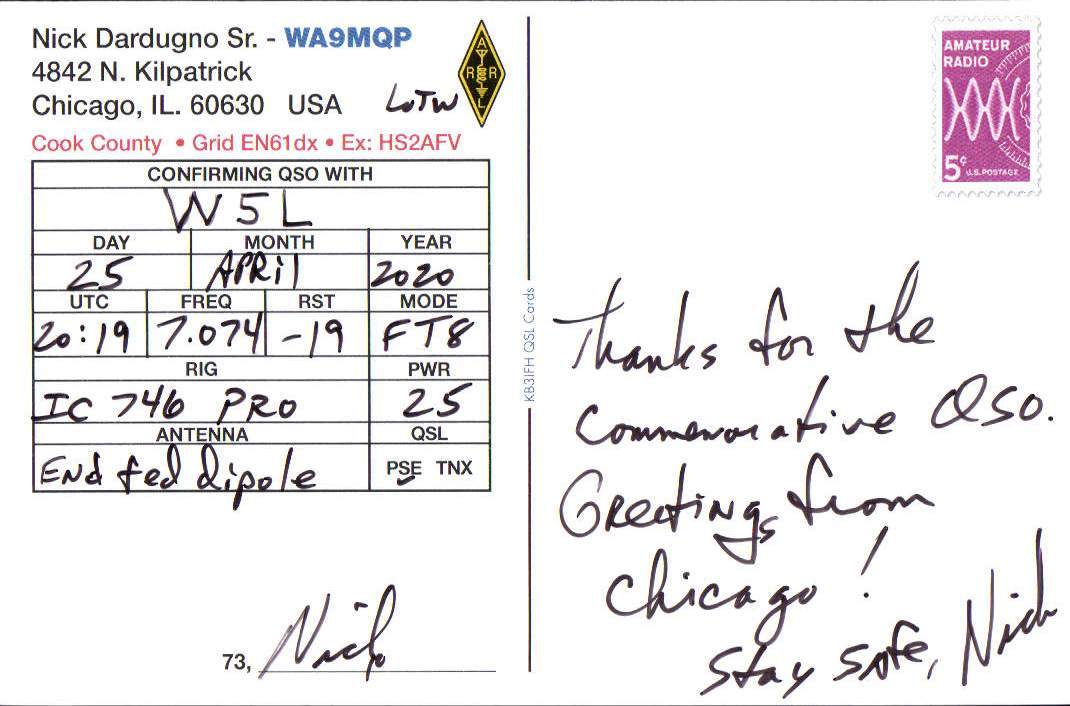 Nick Dardugno Sr. - WA9MQP
4842 N. Kilpatrick
Chicago, IL. 60630 USA LoTW
ARRL
Cook County • Grid EN61dx • Ex: HS2AFV
CONFIRMING QSO WITH
W5L
DAY MONTH YEAR
25 APRil 2020
UTC FREQ RST MODE
20:19 7.074 -19 FT8
RIG PWR
IC 746 PRO 25
ANTENNA QSL
ENd fed dipole PSE TNX
73, Nick
KB3IFH QSL Cards
AMATEUR
RADIO
5¢ U.S. POSTAGE
Thanks for the
commemorative QSO.
GREETINgs from
Chicago!
Stay safe, Nick